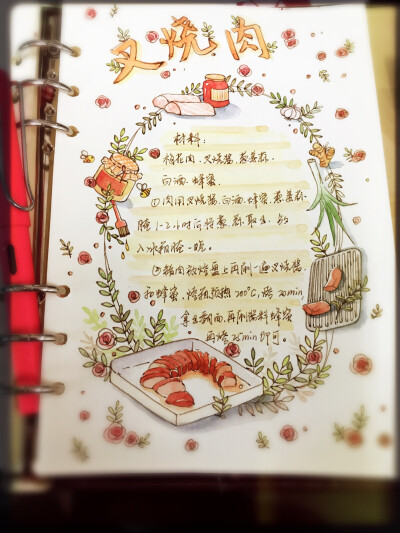 叉烧肉
材料:
梅花肉、叉烧酱、葱姜蒜、
白酒、蜂蜜。
①肉用叉烧酱、白酒、蜂蜜、葱姜蒜
腌1-2小时后将葱蒜取出、放
入冰箱腌一晚。
②将肉放烤盘上再刷一遍叉烧酱
和蜂蜜、烤箱预热200℃、烤20min,
拿出翻面、再刷酱料蜂蜜
再烤25min即可。